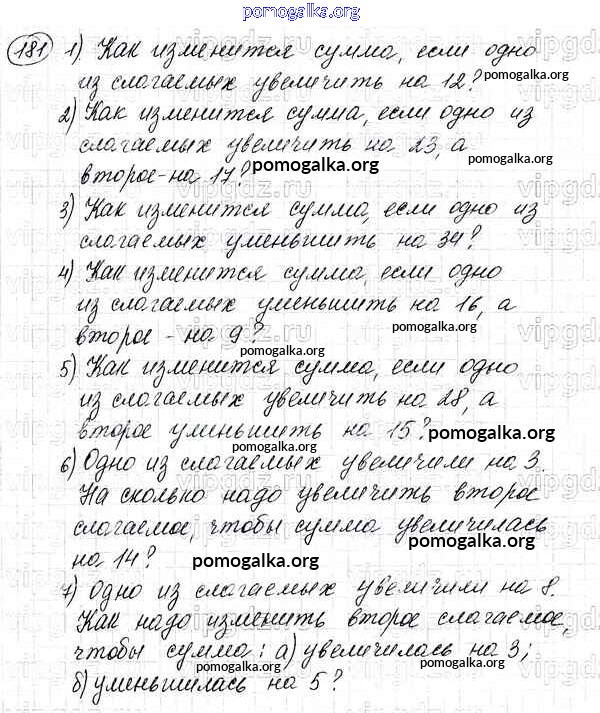 pomogalka.org
181 1) Как изменится сумма, если одно
из слагаемых увеличить на 12? pomogalka.org
2) Как изменится сумма, если одно из
слагаемых увеличить на 23, а pomogalka.org
второе - на 17? pomogalka.org
3) Как изменится сумма, если одно из
слагаемых уменьшить на 34?
4) Как изменится сумма, если одно
из слагаемых уменьшить на 16, а
второе - на 9? pomogalka.org
pomogalka.org
5) Как изменится сумма, если одно
из слагаемых увеличить на 28, а
второе уменьшить на 15? pomogalka.org
6) Одно из слагаемых увеличили на 3.
На сколько надо увеличить второе
слагаемое, чтобы сумма увеличилась
на 14? pomogalka.org pomogalka.org
7) Одно из слагаемых увеличили на 8.
Как надо изменить второе слагаемое,
чтобы сумма: а) увеличилась на 3;
pomogalka.org pomogalka.org
б) уменьшилась на 5?